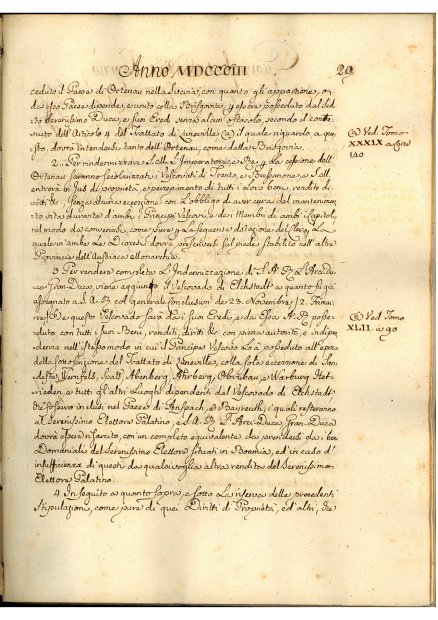 Anno MDCCCIII 29
ceduto il Paese di Ortenau nella Suevia, con quanto gli appartiene, o
da esso Paese dipende, e unito colla Brisgovia, e posseduto dal
Serenissimo Duca, e suoi Eredi senza alcun ostacolo, secondo il
dell'Articolo 4 del Trattato di Luneville (a) il quale riguardo, a
dovrà intendersi tanto dell'Ortenau, come della Brisgovia.
(a) Ved. Tomo
XXXIX. a fogli
140
2. Per indennizzare S. M. L'Imperatore, e Re per la cessione dell'
Ortenau saranno secolarizzati i Vescovati di Trento, e Bressanone, e S. M.
entrerà in di proprietà, e percepimento di tutti i Loro beni, rendite di-
ritti &c. senza alcuna eccezione con L'obbligo di aver cura del mantenimen-
to vita durante d'ambi i Principi Vescovi, e dei Membri di ambi Capitoli,
nel modo da convenirsi, come pure per La seguente dotazione del Clero, La
quale in ambe Le Diocesi dovrà sul piede stabilito nell'altre
Provincie dell'Austriaca Monarchia.
3. Per rendere completa L'Indennizzazione di S. A. R. L'Arci-
duca Gran-Duca, viene aggiunto il Vescovado di Eichstadt a quanto fu già
assegnato a S. A. R. col generale Conclusum dei 23. Novembre
e questo Vescovado sarà da' suoi Eredi, e da Essa A. R. posse-
duto con tutti i suoi Beni, rendite, diritti &c. con piena autorità, e indipen-
denza nell'istesso modo in cui il Principe Vescovo Lo à posseduto all'epoca
della sottoscrizione del Trattato di Luneville, colla sola eccezione di San-
Wernfels, Spalt, Abenberg, Ahrberg, Ohrnbau, e Warburg
e tutti gli altri Luoghi dipendenti dal Vescovado di Eichstadt
che fossero inclusi nel Paese di Anspach, e Bayreuth, i quali resteranno
al Serenissimo Elettore Palatino, e S. A. R. L'Arci-Duca Gran-Duca
dovrà essere risarcito, con un completo equivalente da prendersi da' beni
Domaniali del Serenissimo Elettore situati in Boemia, ed in caso d'
insufficienza di questi da qualsivoglia altra rendita del Serenissimo
Elettore Palatino.
Ved. Tomo
XLII. a 90
4. In seguito a quanto sopra, e sotto La riserva delle precedenti
stipulazioni, come pure di quei Diritti di Proprietà, ed altri, che